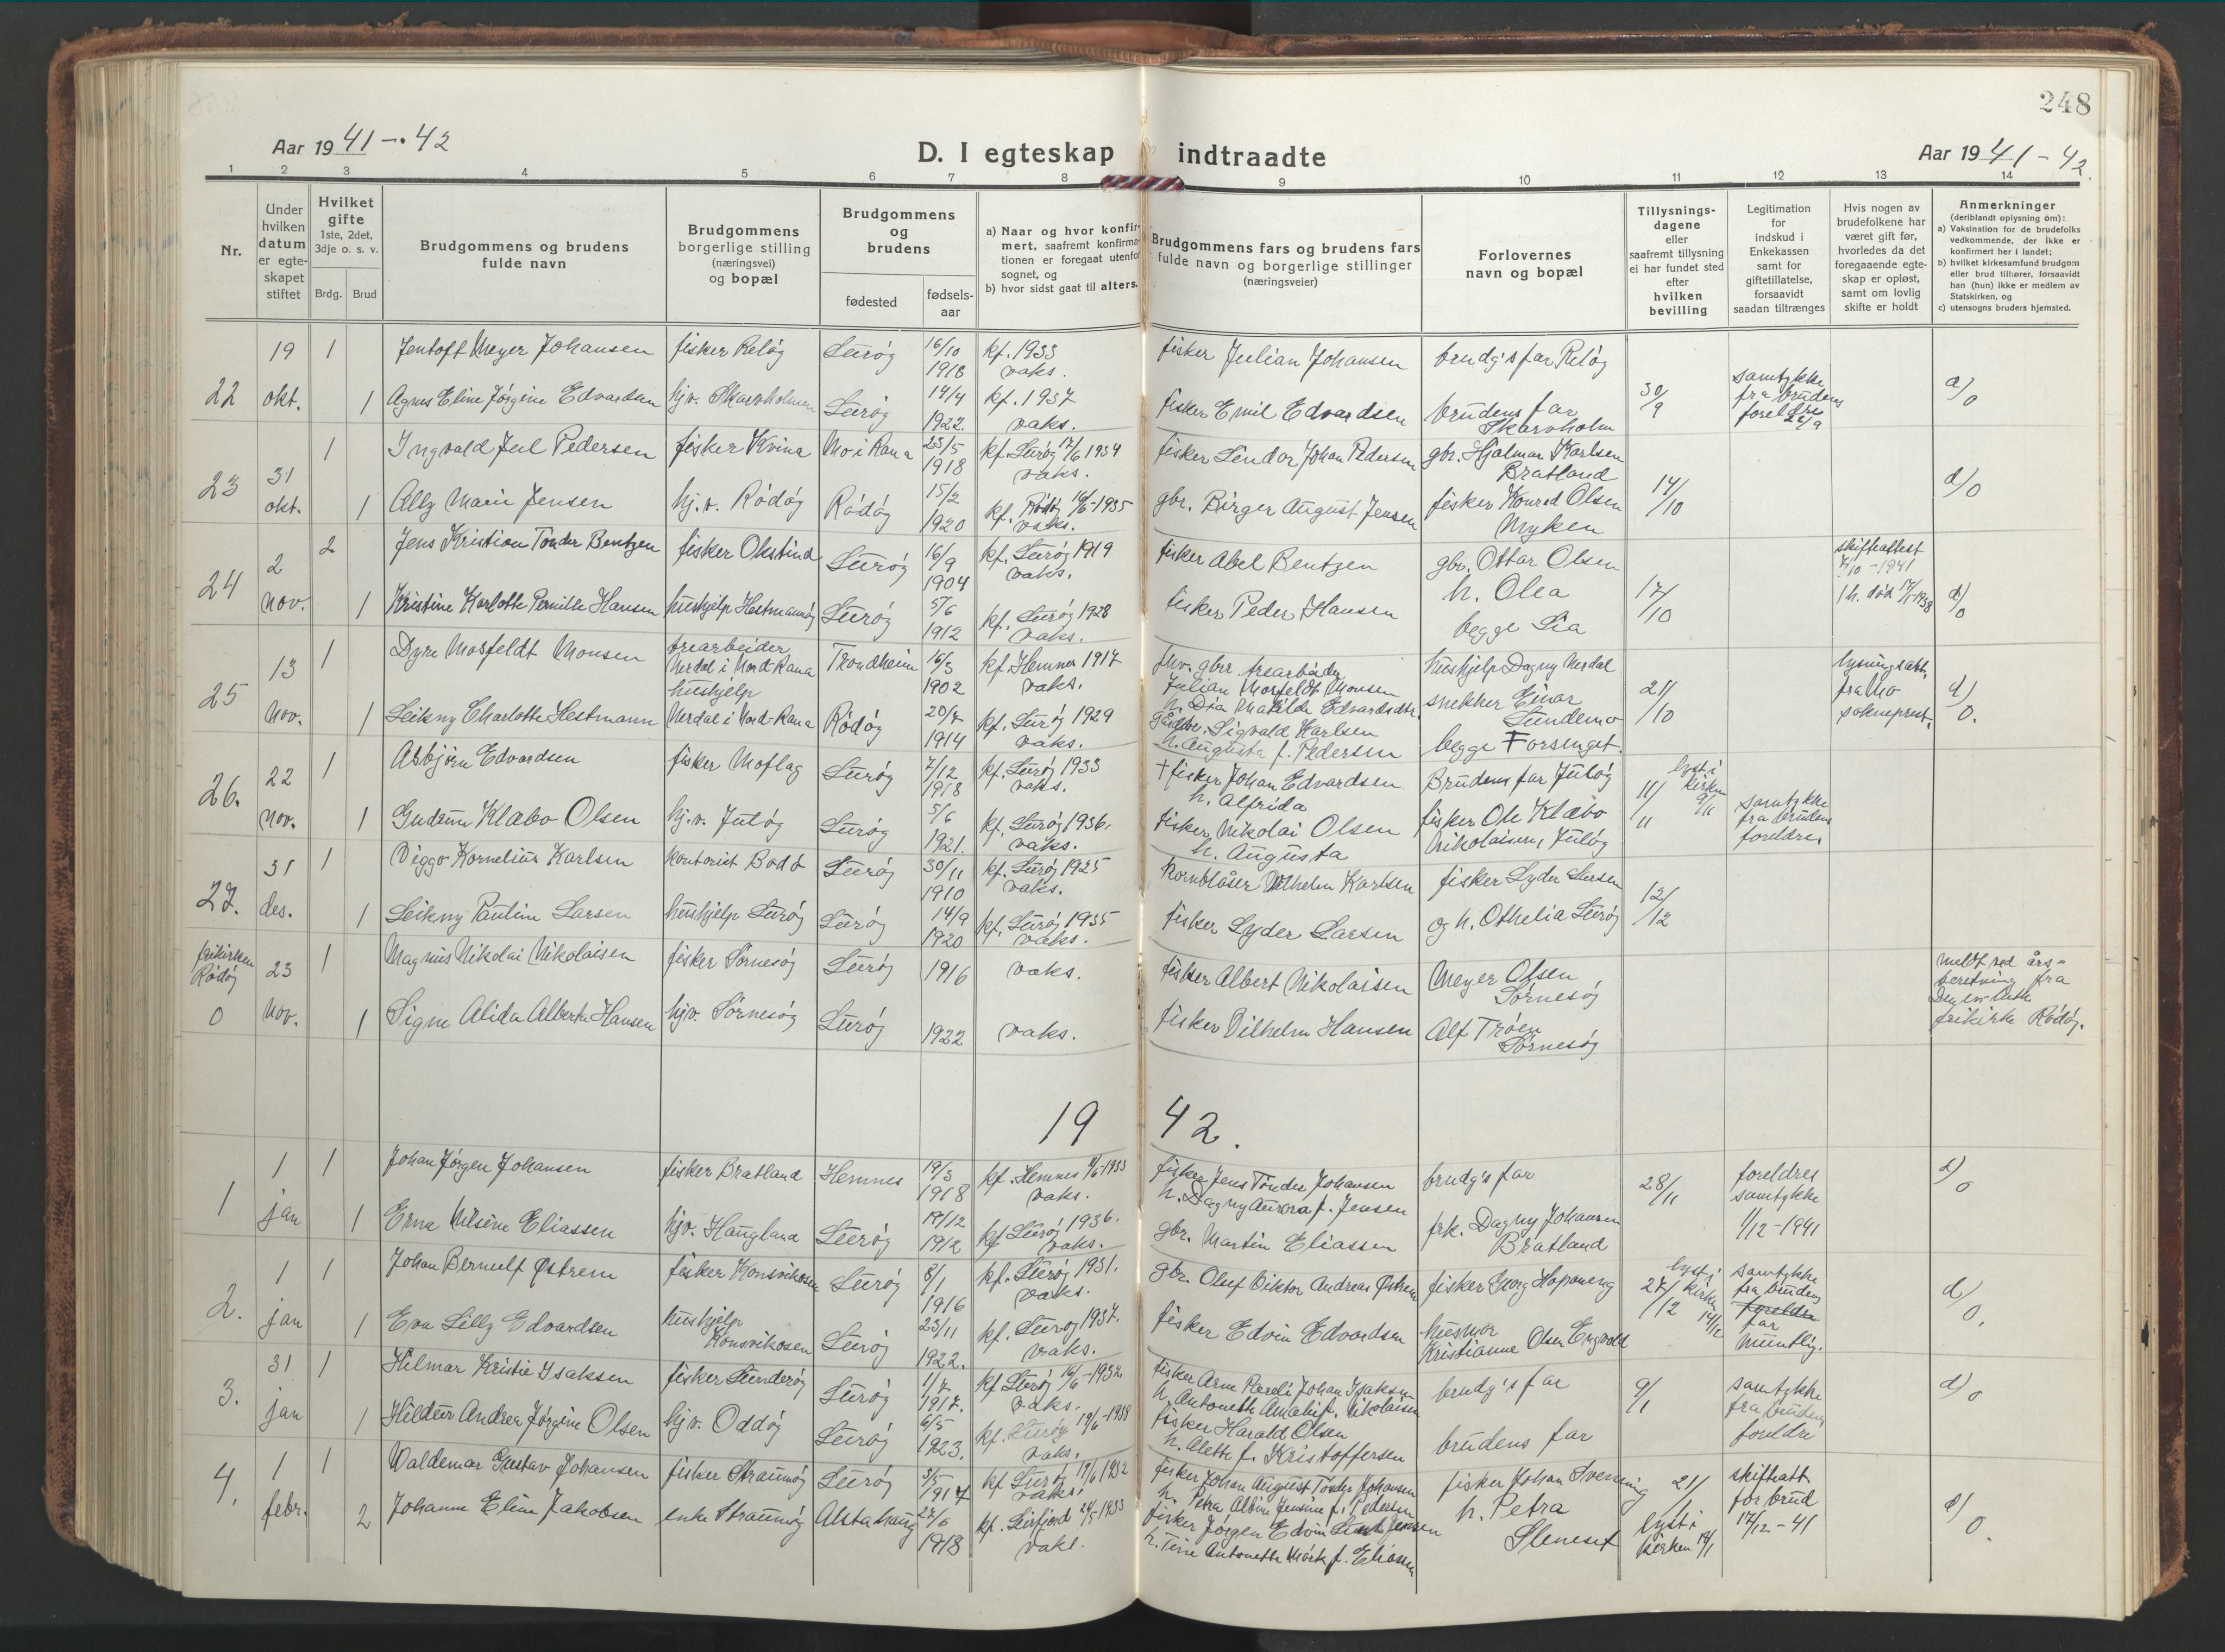 248
Aar 1941-42
D. I egteskap indtraadte
Aar 1941-42.
1 2 3 4 5 6 7 8 9 10 11 12 13 14
Nr.
Under hvilken datum er egteskapet stiftet
Hvilket gifte
1ste, 2det, 3dje o. s. v.
Brdg. Brud
Brudgommens og brudens fulde navn
Brudgommens borgerlige stilling (næringsvei) og bopæl
Brudgommens og brudens
fødested
fødsels-aar
a) Naar og hvor konfirmert, saafremt konfirmationen er foregaat utenfor sognet, og
b) hvor sidst gaat til alters.
Brudgommens fars og brudens fars fulde navn og borgerlige stillinger (næringsveier)
Forlovernes navn og bopæl
Tillysnings-dagene eller saafremt tillysning ei har fundet sted efter hvilken bevilling
Legitimation for indskud i Enkekassen samt for giftetillatelse, forsaavidt saadan tiltrænges
Hvis nogen av brudefolkene har været gift før, hvorledes da det foregaaende egteskap er opløst, samt om lovlig skifte er holdt
Anmerkninger
(deriblandt oplysning om):
a) Vaksination for de brudefolks vedkommende, der ikke er konfirmert her i landet;
b) hvilket kirkesamfund brudgom eller brud tilhører, forsaavidt han (hun) ikke er medlem av Statskirken, og
c) utensogns bruders hjemsted.
22 19 okt. 1 Jentoft Meyer Johansen fisker Reløy Lurøy 16/10 1918 kf. 1933 vaks. fisker Julian Johansen brudg's far Reløy
1 Agnes Eline Jørgine Edvardsen hjv. Skarvholmen Lurøy 14/4 1922. kf. 1937 vaks. fisker Emil Edvardsen brudens far Skarvholm 30/9 samtykke fra brudens foreldre 26/9 a) 0
23 31 okt. 1 Ingvald Juel Pedersen fisker Kvina Mo i Rana 23/5 1918 kf. Lurøy 17/6 1934 vaks. fisker Sendor Johan Pedersen gbr. Hjalmar Karlsen Bratland
1 Ally Marie Jensen hj.v. Rødøy Rødøy 15/2 1920 kf. Rødøy 16/6-1935 vaks. gbr. Birger August Jensen fisker Konrad Olsen Myken 14/10 d/0
24 2 nov. 2 Jens Kristian Tønder Bentzen fisker Okstind Lurøy 16/9 1904 kf. Lurøy 1919 vaks. fisker Abel Bentzen gbr. Ottar Olsen h. Olea begge Lia 17/10 skifteattest 7/10-1941
1 Kristine Karlotte Pernille Hansen hushjelp Hestmannøy Lurøy 5/6 1912 kf. Lurøy 1928 vaks. fisker Peder Hansen 1 h. død 17/1-1938 d/0
25 13 nov. 1 Dyre Mosfeldt Monsen trearbeider Nerdal i Nord-Rana Trondheim 16/3 1902 kf. Hemnes 1917 vaks. fhv. gbr. trearbeider Julian Mosfeldt Monsen h. Dia Matilde Edvardsdtr. hushjelp Dagny Nerdal
1 Leikny Charlotte Hestmann hushjelp Nerdal i Nord-Rana Rødøy 20/7 1914 kf. Lurøy 1929 vaks. Gårdbr. Sigvald Karlsen h. Augusta f. Pedersen snekker Einar Lundemo begge Forsenget. 21/10 lysningsatt. fra Mo sokneprest. d) 0.
26. 22 nov. 1 Asbjørn Edvardsen fisker Moflag Lurøy 7/12 1918 kf. Lurøy 1933 vaks. † fisker Johan Edvardsen h. Alfrida Brudens far Juløy
1 Gudrun Klæbo Olsen hj.v. Juløy Lurøy 5/6 1921. kf. Lurøy 1936. vaks. fisker Nikolai Olsen h. Augusta fisker Ole Klæbo Nikolaisen, Juløy 11/11 lyst i kirken 9/11 samtykke fra brudens foreldre
27. 31 des. 1 Viggo Kornelius Karlsen kontorist Bodø Lurøy 30/11 1910 kf. Lurøy 1925 vaks. Kornblåser Vilhelm Karlsen fisker Lyder Larsen
1 Leikny Pauline Larsen hushjelp Lurøy Lurøy 14/9 1920 kf. Lurøy 1935 vaks. fisker Lyder Larsen og h. Othelia Lurøy 12/12
frikirken Rødøy 0 23 nov. 1 Magnus Nikolai Nikolaisen fisker Sørnesøy Lurøy 1916 vaks. fisker Albert Nikolaisen Meyer Olsen Sørnesøy
1 Signe Alida Alberte Hansen hjv. Sørnesøy Lurøy 1922 vaks. fisker Vilhelm Hansen Alf Trøen Sørnesøy meldt ved årsberetning fra Den ev. luth. frikirke Rødøy.
1942.
1 1 jan 1 Johan Jørgen Johansen fisker Bratland Hemnes 19/3 1918 kf. Hemnes 4/6-1933 vaks. fisker Jens Tønder Johansen h. Dagny Aurora f. Jensen brudg's far
1 Erna Nilsine Eliassen hjv. Haugland Lurøy 19/12 1912 kf Lurøy 1936. vaks. gbr. Martin Eliassen frk. Dagny Johansen Bratland 28/11 foreldres samtykke 1/12-1941 d) 0
2. 1 jan 1 Johan Bernulf Østrem fisker Konsvikosen Lurøy 8/1 1916 kf. Lurøy 1931. vaks. gbr. Oluf Viktor Andreas Østrem fisker Georg Hopaneng
1 Eva Lilly Edvardsen hushjelp Konsvikosen Lurøy 23/11 1922. kf. Lurøy 1937. vaks. fisker Edvin Edvardsen husmor Kristianne Olsen Engvold 27/12 lyst i kirken 14/12 samtykke fra brudens foreldre far muntlig. d) 0.
3. 31 jan 1 Hilmar Kristie Isaksen fisker Sunderøy Lurøy 1/7 1917. kf Lurøy 16/6-1932 vaks. fisker Arne Pareli Johan Isaksen h. Antonette Amalie f. Nikolaisen brudg's far
1 Hildur Andrea Jørgine Olsen hjv. Oddøy Lurøy 6/5 1923. kf. Lurøy 19/6-1938 vaks. fisker Harald Olsen h. Alette f. Kristoffersen brudens far 9/1 samtykke fra brudens foreldre d) 0
4. 1 febr. 1 Valdemar Gustav Johansen fisker Straumøy Lurøy 3/5 1917 kf Lurøy 19/6 1932 vaks. fisker Johan August Tønder Johansen h. Petra Albine Jensine f. Pedersen fisker Johan Svenning h. Petra Sleneset
2 Johanne Eline Jakobsen enke Straumøy Alstahaug 27/6 1918 kf. Leirfjord 24/9-1933 vaks. fisker Jørgen Edvin Jensen h. Tine Antonette Mørk f. Eliassen 21/ lyst i kirken 18/1 skifteatt. for brud 17/12-41 d) 0.